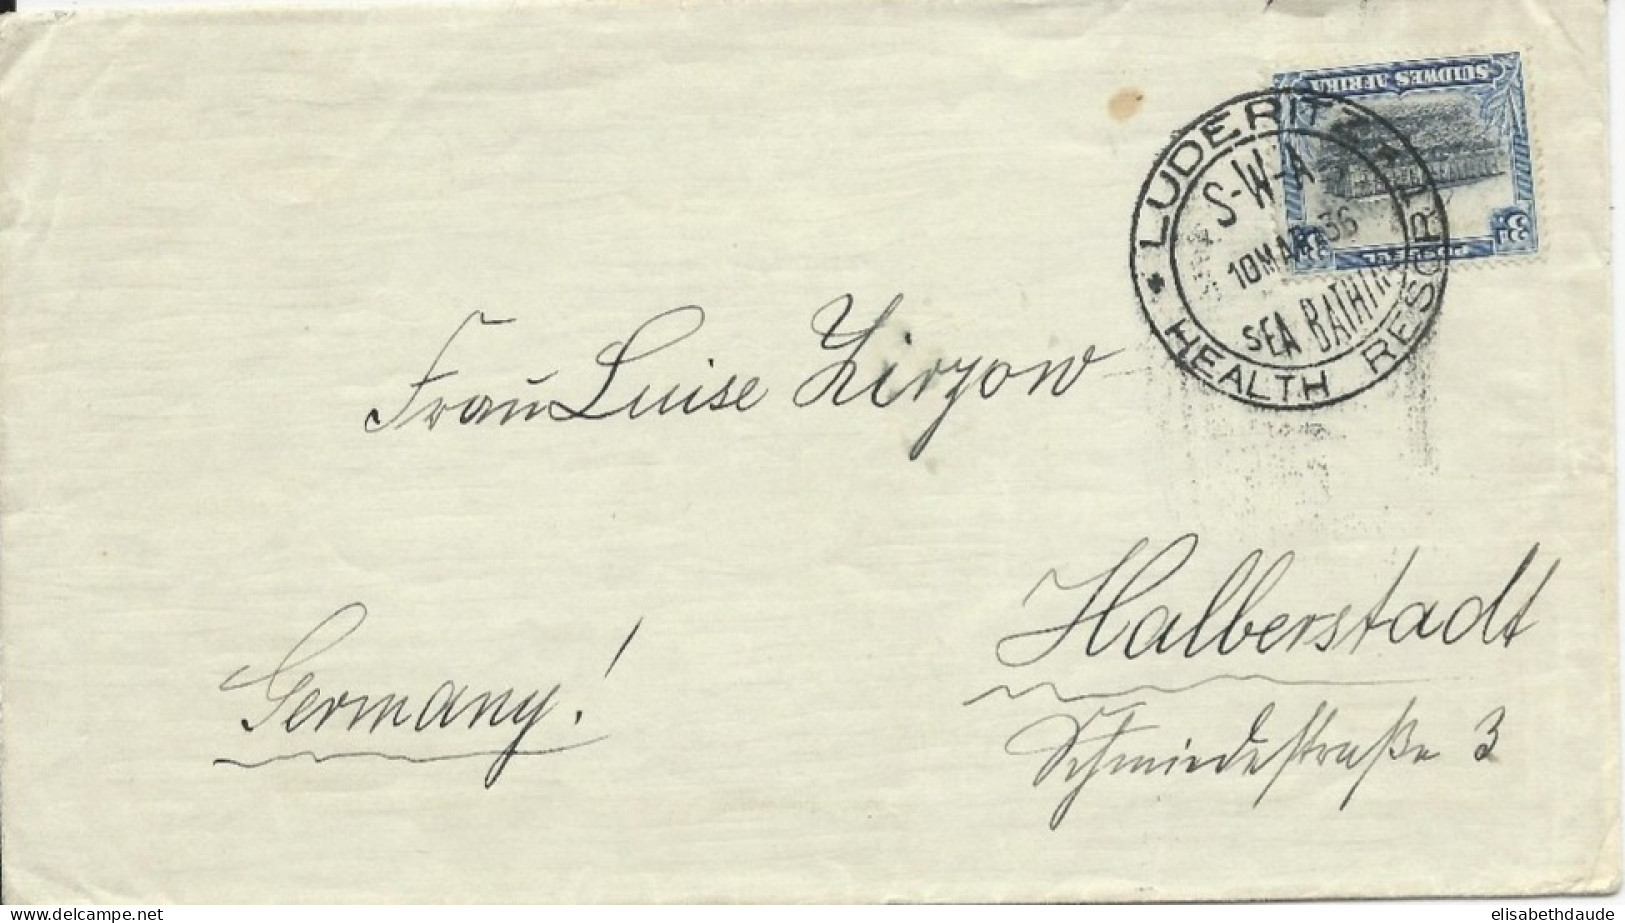 SUIDWES AFRIKA
3d
LUDERITZ
S-W-A
10 MAR 36
SEA BATHING
HEALTH RESORT
Frau Luise Zirzow
Halberstadt
Germany!
Schmiedestraße 3
delcampe.net
elisabethdaude